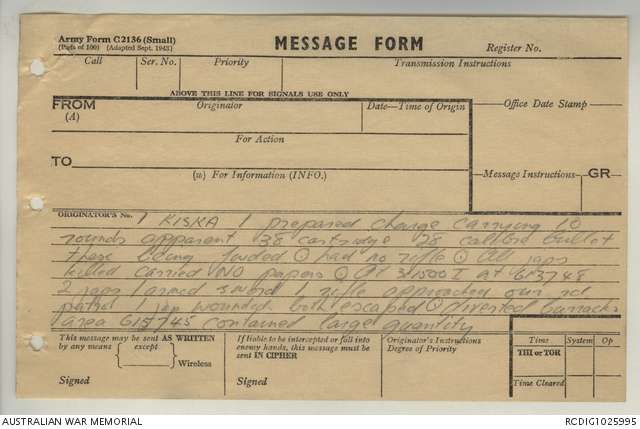 Army Form C2136 (Small)
(Pads of 100) (Adapted Sept. 1943)
MESSAGE FORM
Register No.
Call
Ser. No.
Priority
Transmission Instructions
ABOVE THIS LINE FOR SIGNALS USE ONLY
FROM
(A)
Originator
Date—Time of Origin
Office Date Stamp
For Action
TO
(W) For Information (INFO.)
Message Instructions
GR
ORIGINATOR'S No.
1 KISKA 1 prepared charge carrying 10
rounds apparent 38 cartridge 28 calibre bullet
these being ⊙ had no rifle ⊙ All japs
killed carried NO papers ⊙ At 311500 I at 613748
2 japs 1 armed sword 1 rifle approached our rd
patrol 1 jap wounded both escaped ⊙ barracks
area 615745 contained large quantity
This message may be sent AS WRITTEN
by any means
except
Wireless
Signed
If liable to be intercepted or fall into
enemy hands, this message must be
sent IN CIPHER
Signed
Originator's Instructions
Degree of Priority
Time
System
Op
THI or TOR
Time Cleared
AUSTRALIAN WAR MEMORIAL
RCDIG1025995